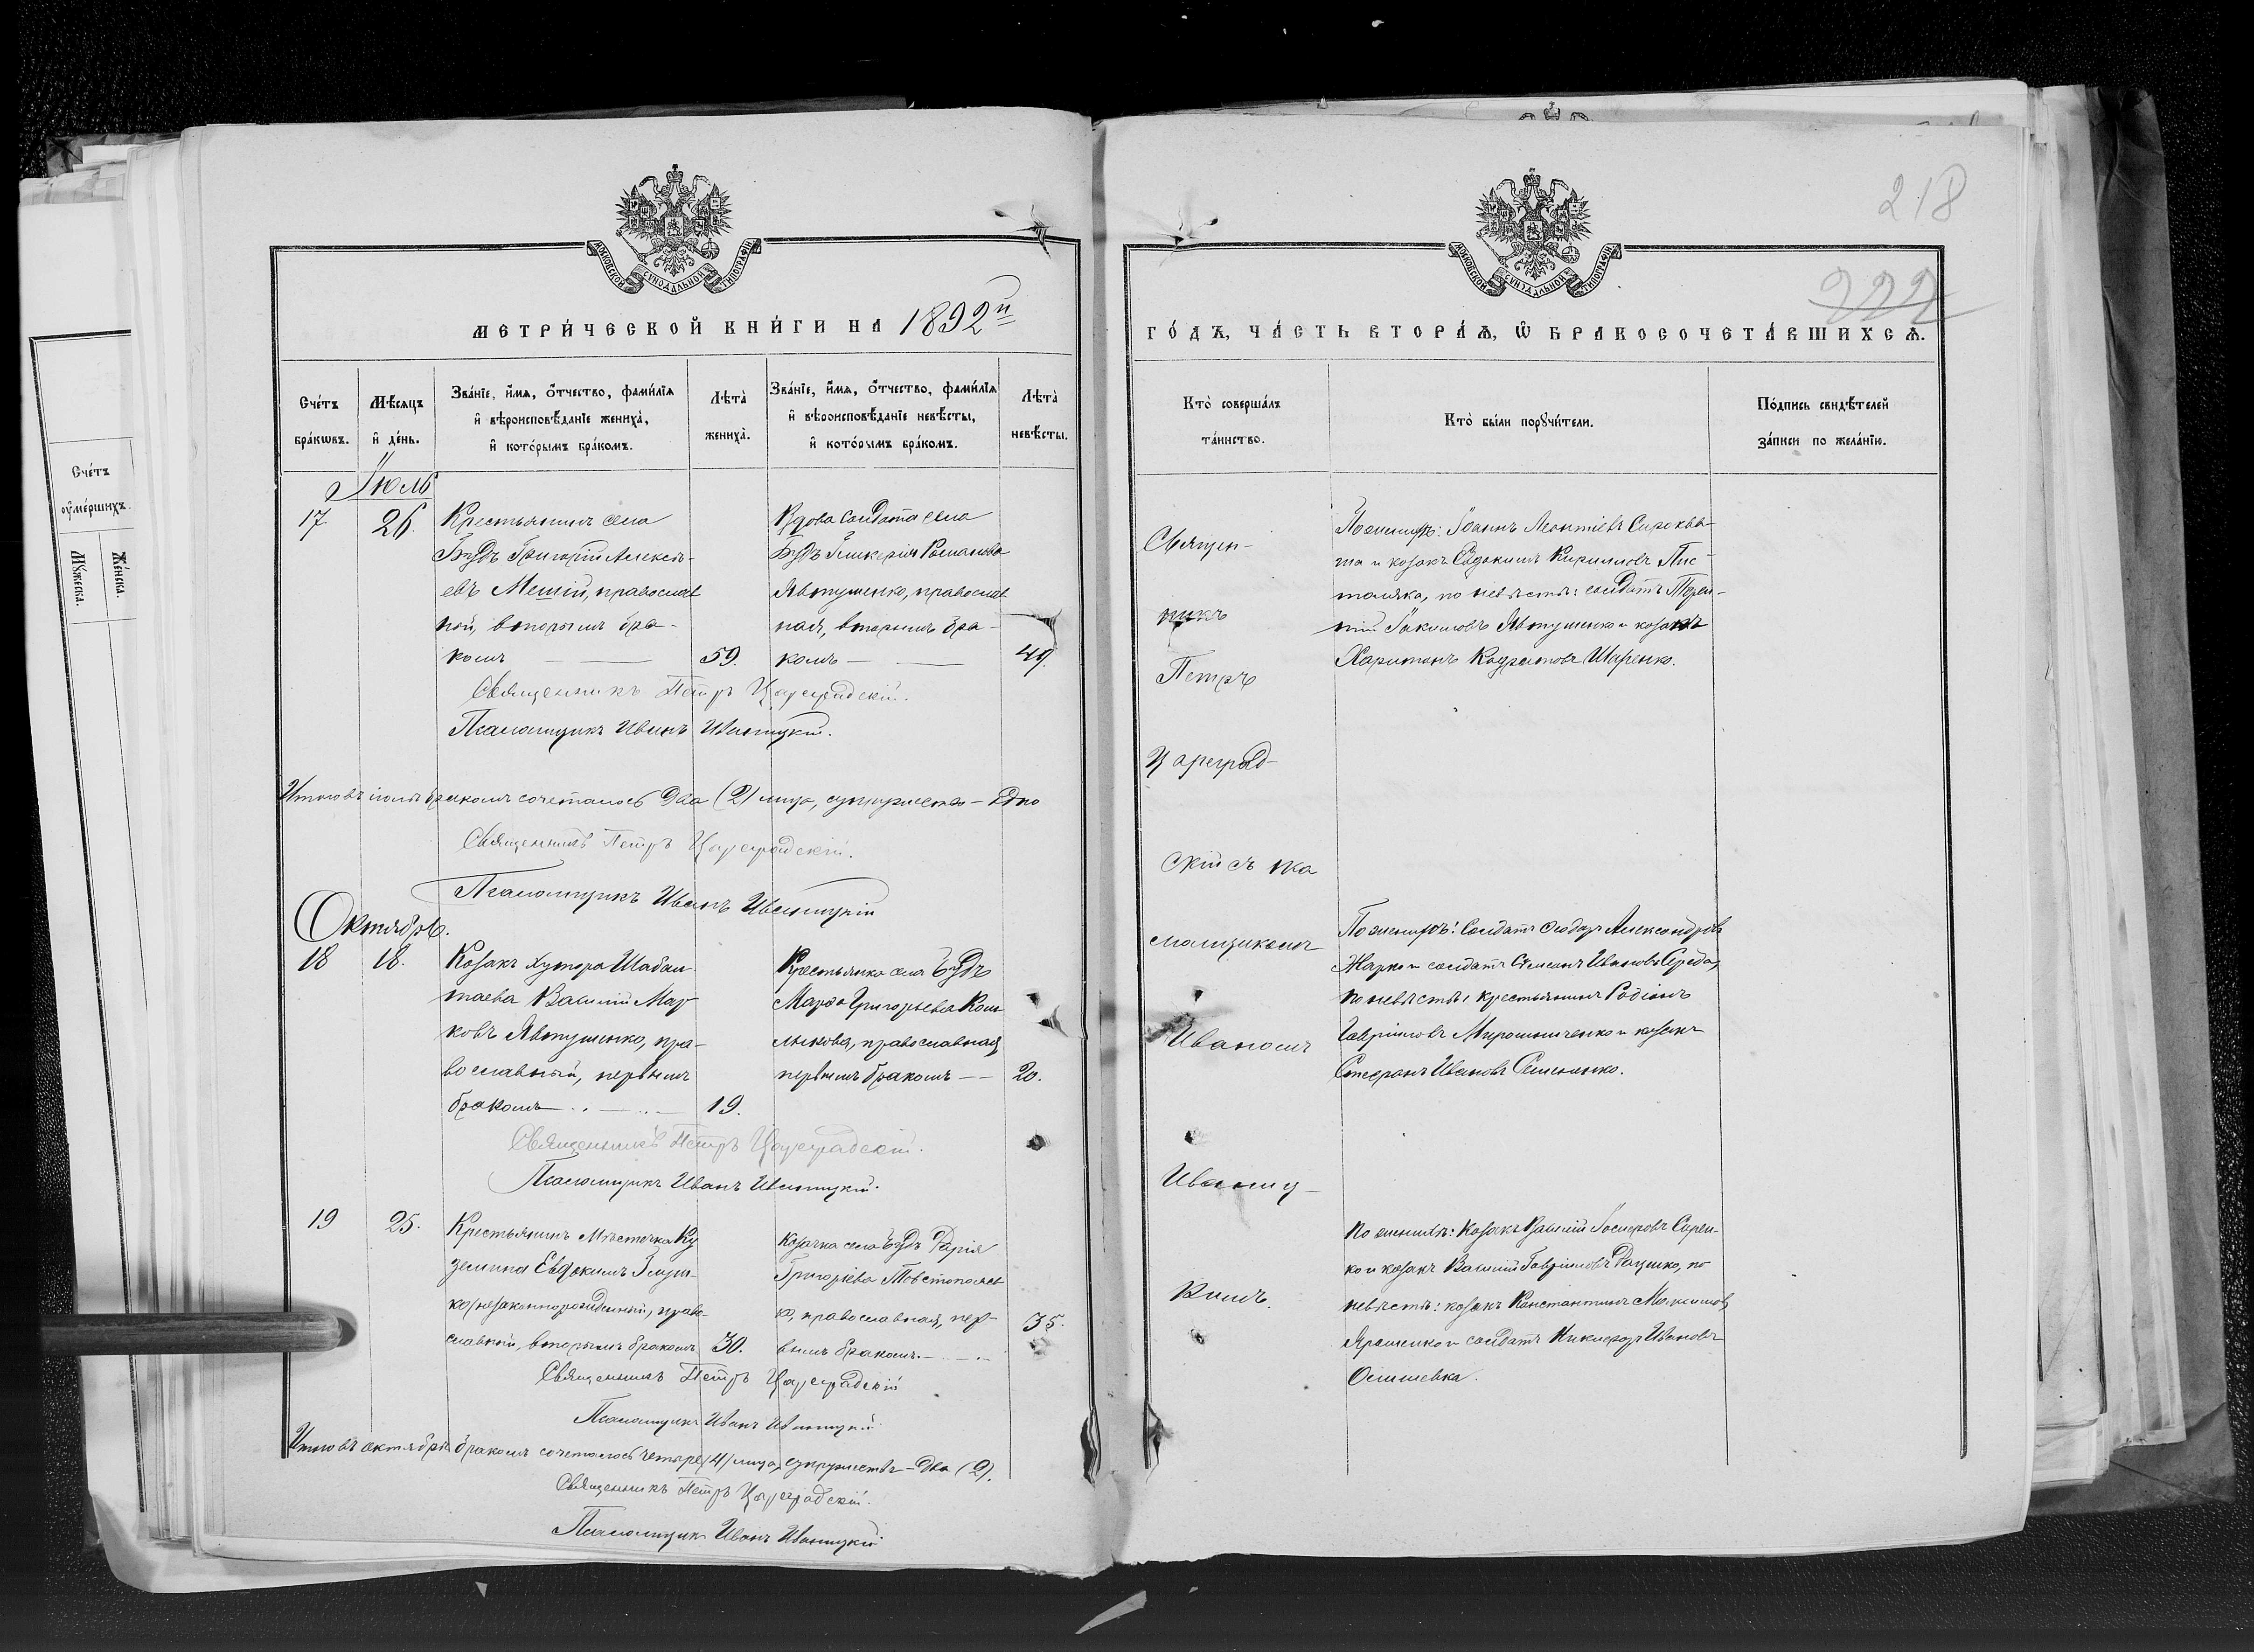 МОСКОВСКОЙ СУНОДАЛЬНОЙ ТИПОГРАФІИ
МЕТРИ́ЧЕСКОЙ КНИ́ГИ НА 1892й
Сче́тъ бра́кѡвъ.
Мѣ́сяцъ и҆ де́нь.
Зва́нїе, и҆́мѧ, ѻ҆́тчество, фами́лїѧ и҆ вѣроисповѣ́данїе жениха̀, и҆ кото́рымъ бра́комъ.
Лѣта̀ жениха̀.
Зва́нїе, и҆́мѧ, ѻ҆́тчество, фами́лїѧ и҆ вѣроисповѣ́данїе невѣ́сты, и҆ кото́рымъ бра́комъ.
Лѣта̀ невѣ́сты.
Сче́тъ
ᲂу҆ме́ршихъ.
Мꙋ́жеска.
Же́нска.
Іюль
17
26.
Крестьянинъ села
Будъ Григорій Алексѣ-
евъ Мешій, православ
ной, вторымъ бра-
комъ
59.
Вдова солдата села
Будъ Гликерія Романова
Явтушенко, православ
ная, вторымъ бра-
комъ —
49.
Священникъ Петръ Цареградскій.
Псаломщикъ Иванъ Иваницкій.
Итого въ іюлѣ бракомъ сочеталось два (2) лица, супружество – одно
Священникъ Петръ Цареградскій.
Псаломщикъ Иванъ Иваницкій
Октябрь.
18
18.
Козакъ хутора Шабал-
таева Василій Мар-
ковъ Явтушенко, пра-
вославный, первымъ
бракомъ —
19.
Крестьянка села Будъ
Марфа Григорьева
православная,
первымъ бракомъ —
20.
Священникъ Петръ Цареградскій.
Псаломщикъ Иванъ Иваницкій.
19
25.
Крестьянинъ мѣстечка Ку
земина Евдокимъ
незаконнорожденный, право-
славный, вторымъ бракомъ
30.
Козачка села Будъ Дарія
Григоріева
православная, пер-
вымъ бракомъ. —
35.
Священникъ Петръ Цареградскій
Псаломщикъ Иванъ Иваницкій
Итого въ октябрѣ бракомъ сочеталось четыре (4) лица, супружествъ – два (2).
Священникъ Петръ Цареградскій.
Псаломщикъ Иванъ Иваницкій
218
222
МОСКОВСКОЙ СУНОДАЛЬНОЙ ТИПОГРАФІИ
ГО́ДЪ, ЧА́СТЬ ВТОРА́Ѧ, Ѡ҆ БРАКОСОЧЕТА́ВШИХСѦ.
Кто̀ соверша́лъ та́инство.
Кто̀ бы́ли порꙋчи́тели.
По́дпись свидѣ́телей за́писи по жела́нїю.
Священ-
никъ
Петръ
Цареград-
скій съ пса
ломщикомъ
Иваномъ
Иваниц-
кимъ.
По женихѣ: Іоаннъ Леонтіевъ Сироква-
ша и козакъ Евдокимъ Кириловъ Пис
по невѣстѣ: солдатъ Терен-
тій Іакимовъ Явтушенко и козакъ
Харитонъ Кодратовъ Шаренко.
По женихѣ: солдатъ Ѳеодоръ Александровъ
Жарко и солдатъ Симеонъ Ивановъ Середа,
по невѣстѣ: крестьянинъ Родіонъ
Гавріиловъ Мирошниченко и козакъ
Стефанъ Ивановъ Семененко.
По женихѣ: козакъ Василій Іосифовъ Сирен-
ко и козакъ Василій Гавріиловъ Даценко, по
невѣстѣ: козакъ Константинъ Максимовъ
Ярошенко и солдатъ Никифоръ Ивановъ